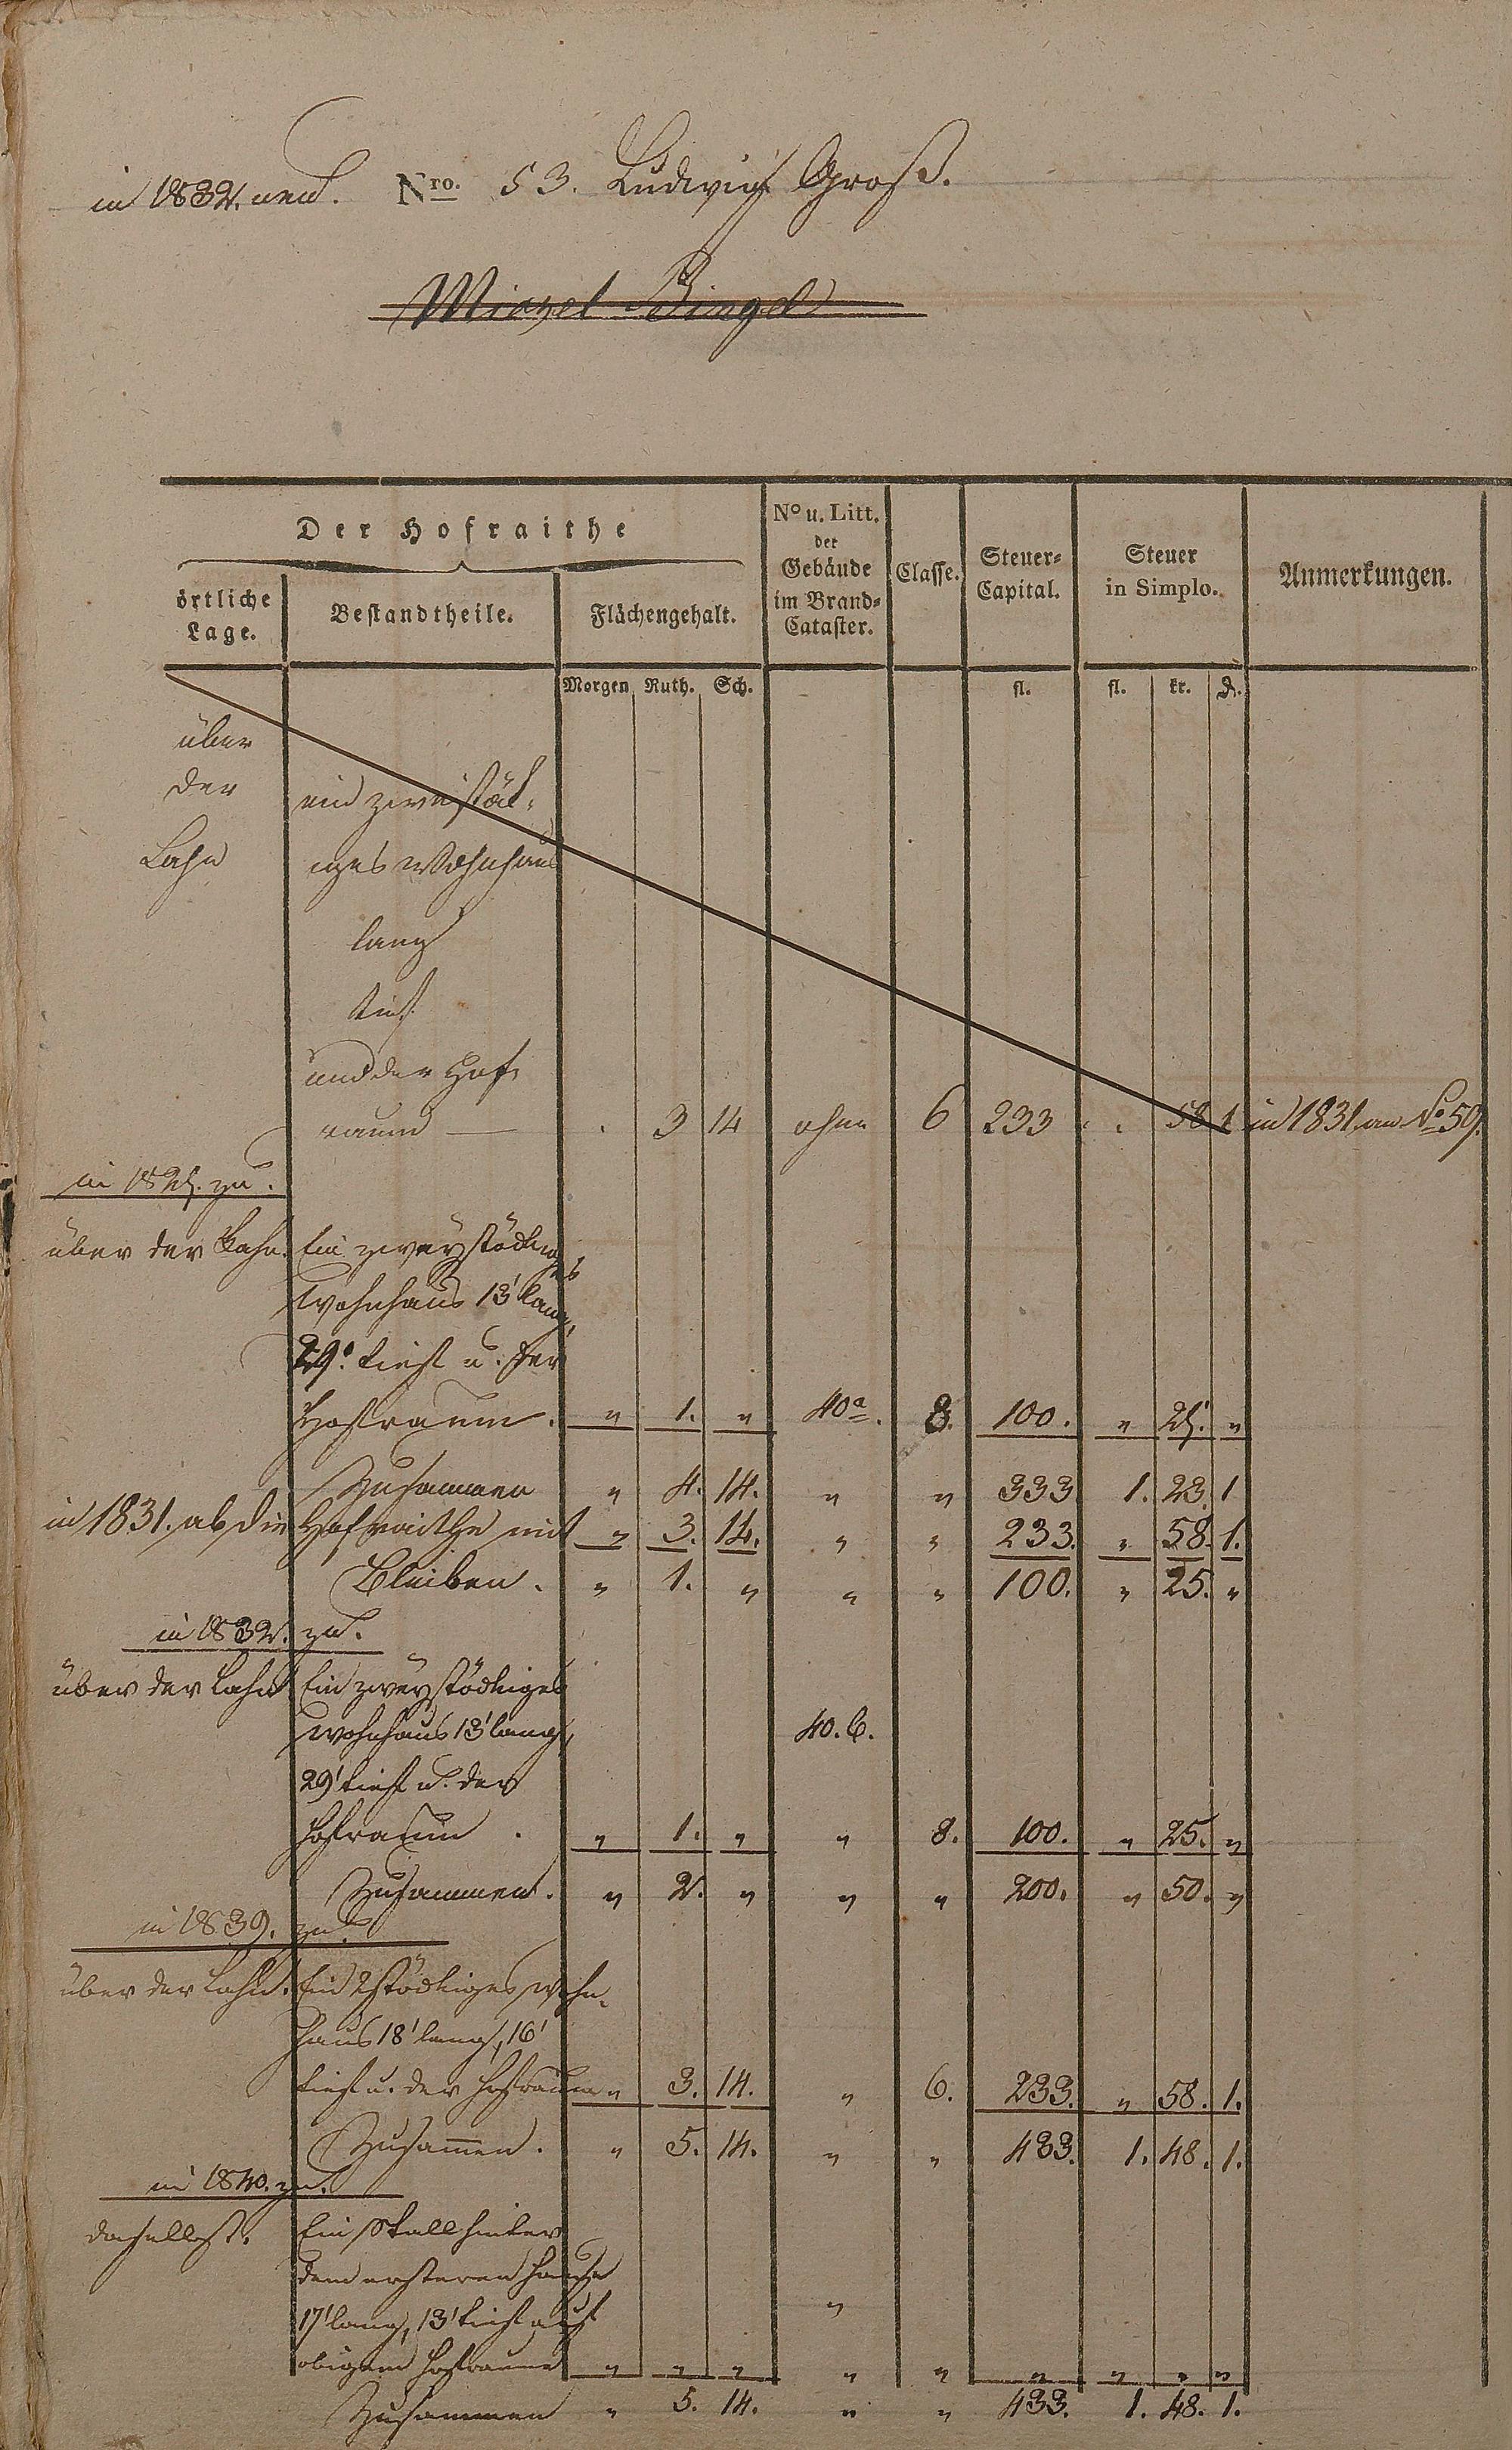 in 1832. neu. Nro. 53. Ludwig Groß.
Michel Bingel
Der Hofraithe
örtliche Lage.
Bestandtheile.
Flächengehalt.
No u. Litt. der Gebäude im Brand-Cataster.
Classe.
Steuer-Capital.
Steuer in Simplo.
Anmerkungen.
Morgen Ruth. Sch. fl. fl. kr. d.
über
der ein zweistök-
Lahn iges Wohnhaus
lang
tief
und der Hof-
raum — . 3 14 ohne 6 233 . . 58 1 in 1831 an No 59.
in 1825. zu.
über der Lahn. Ein zweystöckiges
Wohnhaus 13' lang,
29' tief u. der
Hofraum. " 1. " 40a. 8. 100. " 25. "
Zusammen " 4. 14. " " 333 1. 23. 1
in 1831. ab die Hofraithe mit " 3. 14. " " 233. " 58. 1.
Bleiben. " 1. " " " 100. " 25. "
in 1832. zu.
über der Lahn Ein zweystöckiges
Wohnhaus 13' lang, 40. b.
29' tief u. der
Hofraum . " 1. " " 8. 100. " 25. "
Zusammen. " 2. " " " 200. " 50. "
in 1839. zu.
über der Lahn. Ein 2stöckiges Wohn-
haus 18' lang, 16'
tief u. der Hofraum " 3. 14. " 6. 233. " 58. 1.
Zusammen. " 5. 14. " " 433. 1. 48. 1.
in 1840. zu.
daselbst. Ein Stall hinter
dem ersteren Hause
17' lang, 13' tief auf "
obigem Hofraume " " " " " " " " "
Zusammen " 5. 14. " " 433. 1. 48. 1.